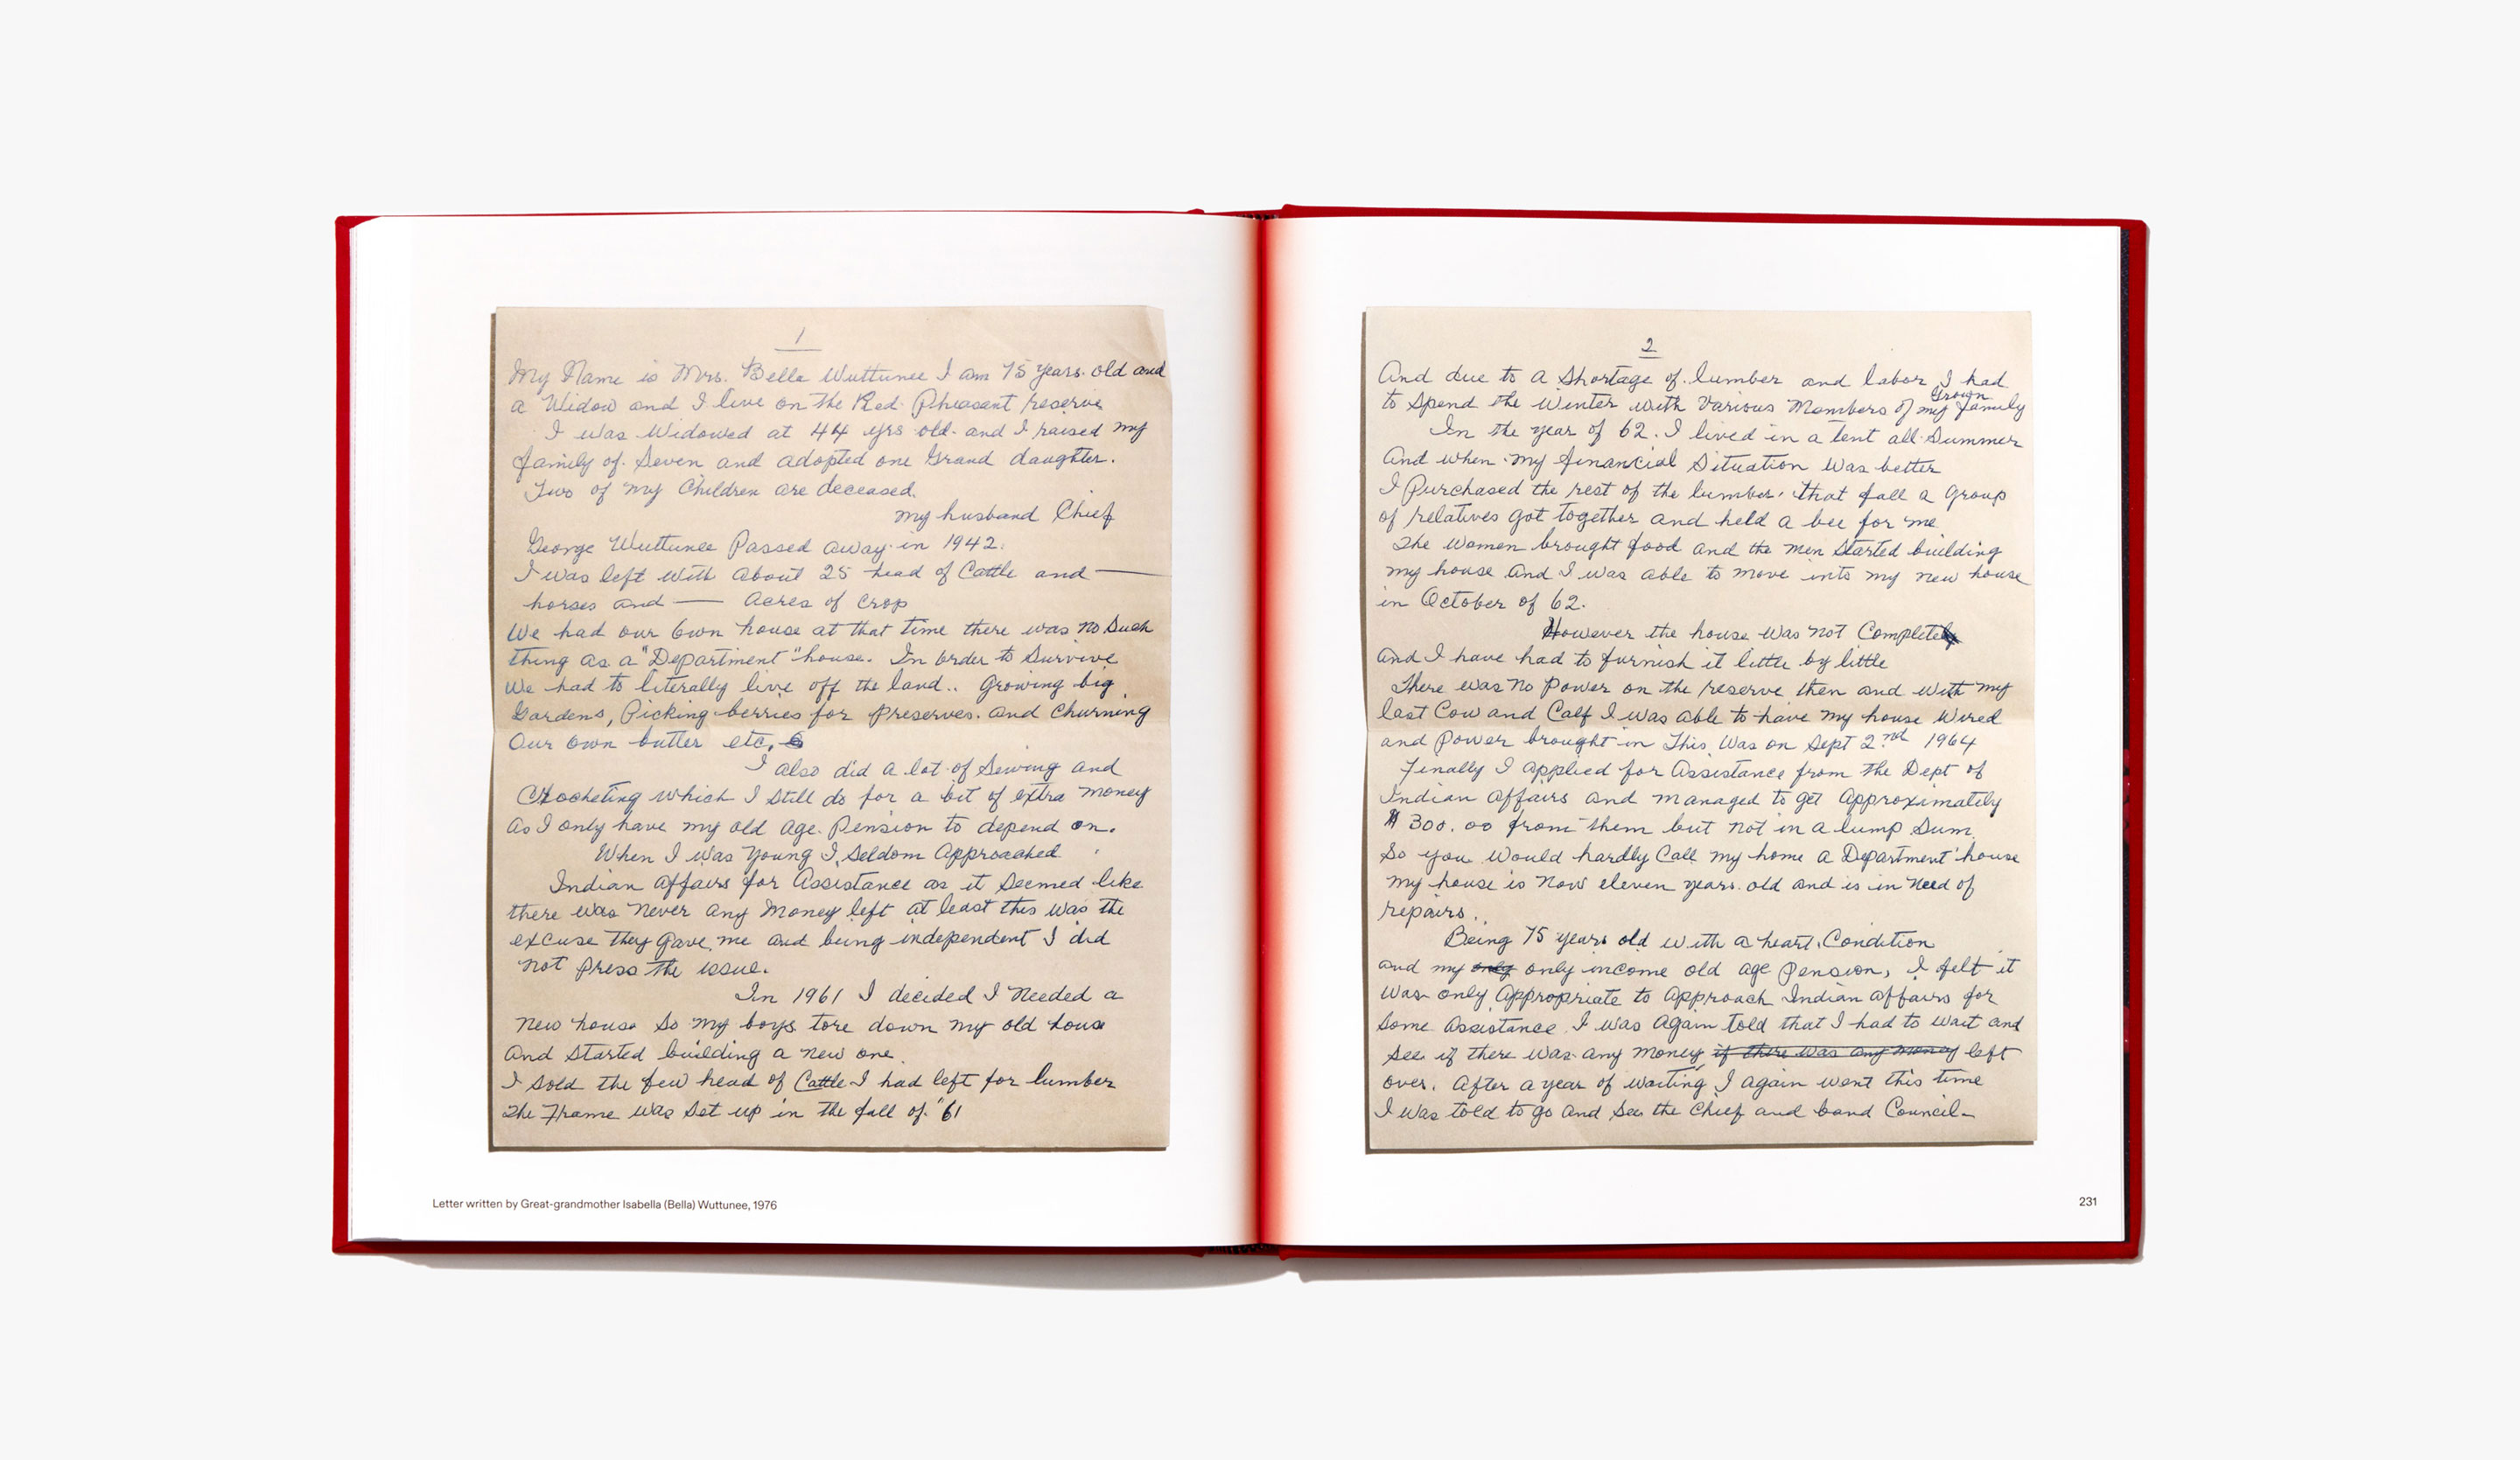 1
My Name is Mrs. Bella Wuttunee I am 75 years. old and
a Widow and I live on the Red Pheasant reserve
I was Widowed at 44 yrs old. and I raised my
family of. Seven and adopted one Grand daughter.
Two of my Children are deceased.
my husband Chief
George Wuttunee Passed away in 1942.
I was left with about 25 head of Cattle and —
horses and — Acres of Crop
We had our own house at that time there was no Such
thing as a "Department" house. In order to Survive
We had to literally live off the land.. Growing big
Gardens, Picking berries for preserves. and Churning
Our own butter etc.
I also did a lot of Sewing and
Crocheting which I still do for a bit of extra money
as I only have my old age. Pension to depend on.
When I was Young I, Seldom Approached
Indian affairs for Assistance as it seemed like
there was never any Money left at least this was the
excuse they gave me and being independent I did
not press the issue.
In 1961 I decided I Needed a
New house So my boys tore down my old house
And started building a new one.
I sold the few head of Cattle I had left for lumber
The Frame was Set up in the fall of "61
Letter written by Great-grandmother Isabella (Bella) Wuttunee, 1976
2
And due to a Shortage of. lumber and labor I had
Grown
to Spend the Winter with Various Members of my family
In the year of 62. I lived in a tent all Summer
And when my financial Situation was better
I Purchased the rest of the lumber. that fall a Group
of relatives got together and held a bee for me
The Women brought food and the men Started building
my house And I was able to move into my new house
in October of 62.
However the house was not Complete
and I have had to furnish it little by little
There was no Power on the reserve then and with my
last Cow and Calf I was able to have my house Wired
and Power brought in This Was on Sept 2nd 1964
Finally I applied for Assistance from the Dept of
Indian affairs and managed to get Approximately
$300.00 from them but not in a lump Sum.
So you would hardly Call my home a Department' house
my house is Now eleven years. old and is in need of
repairs..
Being 75 years old with a heart. Condition
and my only only income old age pension, I felt it
was only Appropriate to Approach Indian affairs for
Some Assistance I was Again told that I had to wait and
see if there was any money if there was any money left
over. After a year of waiting, I again went this time
I was told to go and See the Chief and band Council-
231